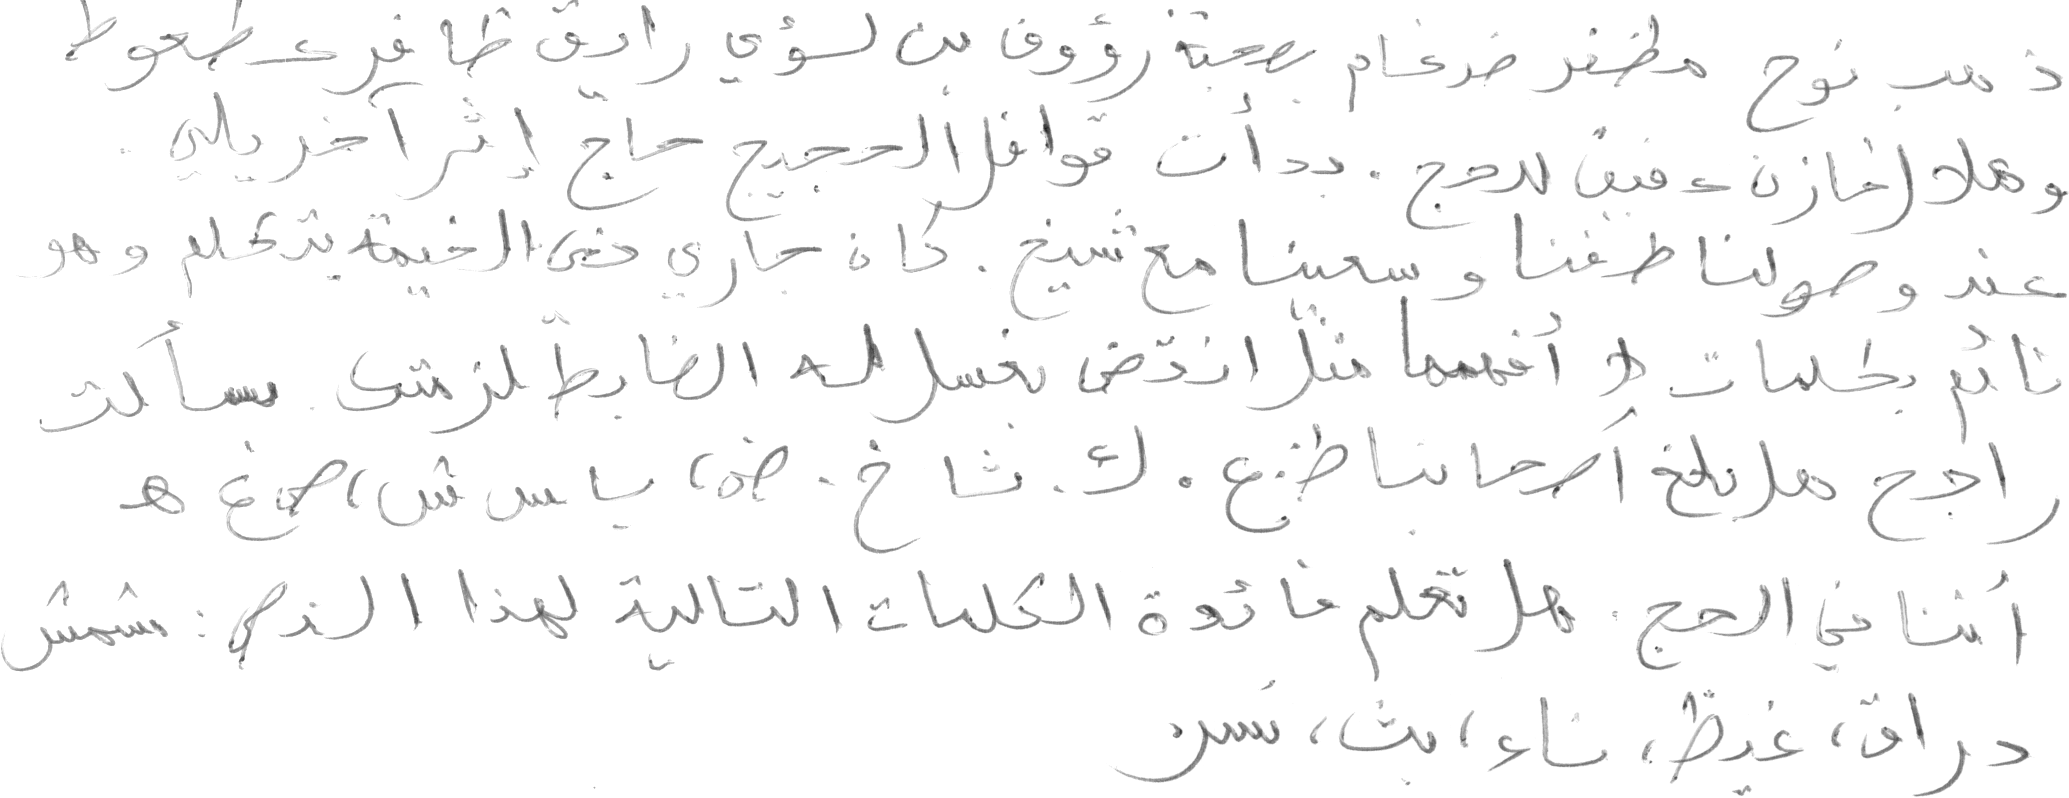 ذهب نوح مظفر ضرغام بصحبة رؤوف بن لسؤي رادق ظافر عطعوط
وهلا غازي عفيف للحج. بدأت قوافل الحجيج حاج إثر آخر يلبي.
عند وصولنا طفنا وسعينا مع شيخ. كان جاري في الخيمة يتكلم وهو
نائم بكلمات لا أفهمها مثلاً نغسل له الضابط. سألت
راجح هل بلغ أصحابنا ظ. ع. ك. شا خ. ض، يا س ش، ص غ هـ
أننا في الحج. هل تعلم فائدة الكلمات التالية لهذا النص: مشمش
دراق، غيظ، ناء، بث،